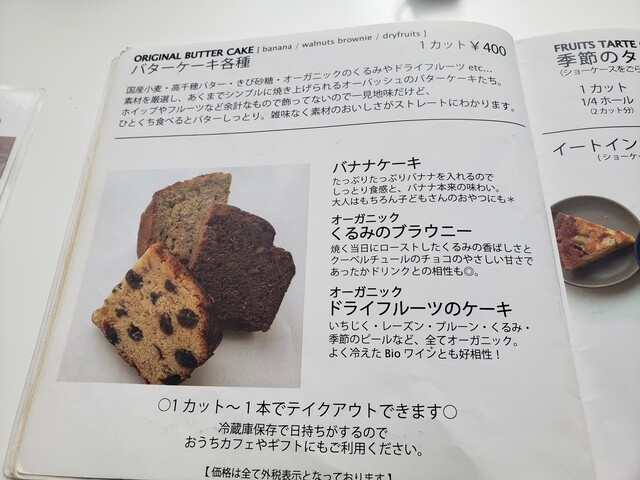 ORIGINAL BUTTER CAKE [ banana / walnuts brownie / dryfruits ]
バターケーキ各種
1カット¥400
国産小麦・高千穂バター・きび砂糖・オーガニックのくるみやドライフルーツ etc...
素材を厳選し、あくまでシンプルに焼き上げられるオーバッシュのバターケーキたち。
ホイップやフルーツなど余計なもので飾ってないので一見地味だけど、
ひとくち食べるとバターしっとり。雑味なく素材のおいしさがストレートにわかります。
バナナケーキ
たっぷりたっぷりバナナを入れるので
しっとり食感と、バナナ本来の味わい。
大人はもちろん子どもさんのおやつにも*
オーガニック
くるみのブラウニー
焼く当日にローストしたくるみの香ばしさと
クーベルチュールのチョコのやさしい甘さで
あったかドリンクとの相性も◎。
オーガニック
ドライフルーツのケーキ
いちじく・レーズン・プルーン・くるみ・
季節のピールなど、全てオーガニック。
よく冷えた Bio ワインとも好相性！
○1カット〜1本でテイクアウトできます○
冷蔵庫保存で日持ちがするので
おうちカフェやギフトにもご利用ください。
【価格は全て外税表示となっております】
FRUITS TARTE
季節のタ
(ショーケースをごら
1カット
1/4ホール
(2カット分)
イートイン
(ショーケ